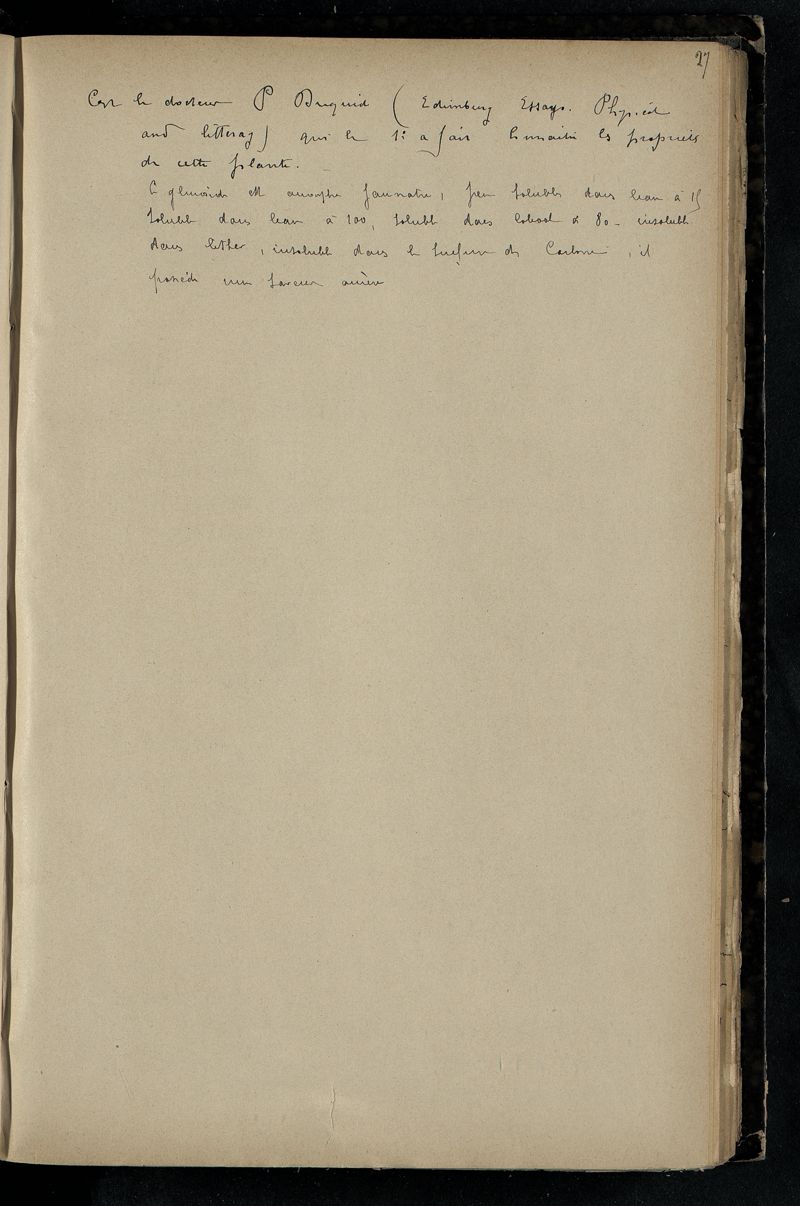 27
C'est le docteur P Duguid ( Edimburg Essays. Physical
and litterag) qui le 1er a fait connaitre les proprietés
de cette plante.
Ce glucoside est amorphe jaunatre, peu soluble dans l'eau à 15
soluble dans l'eau à 100, soluble dans l'alcool à 80 - insoluble
dans l'ether, insoluble dans le sulfure de Carbone, il
possède une saveur amère